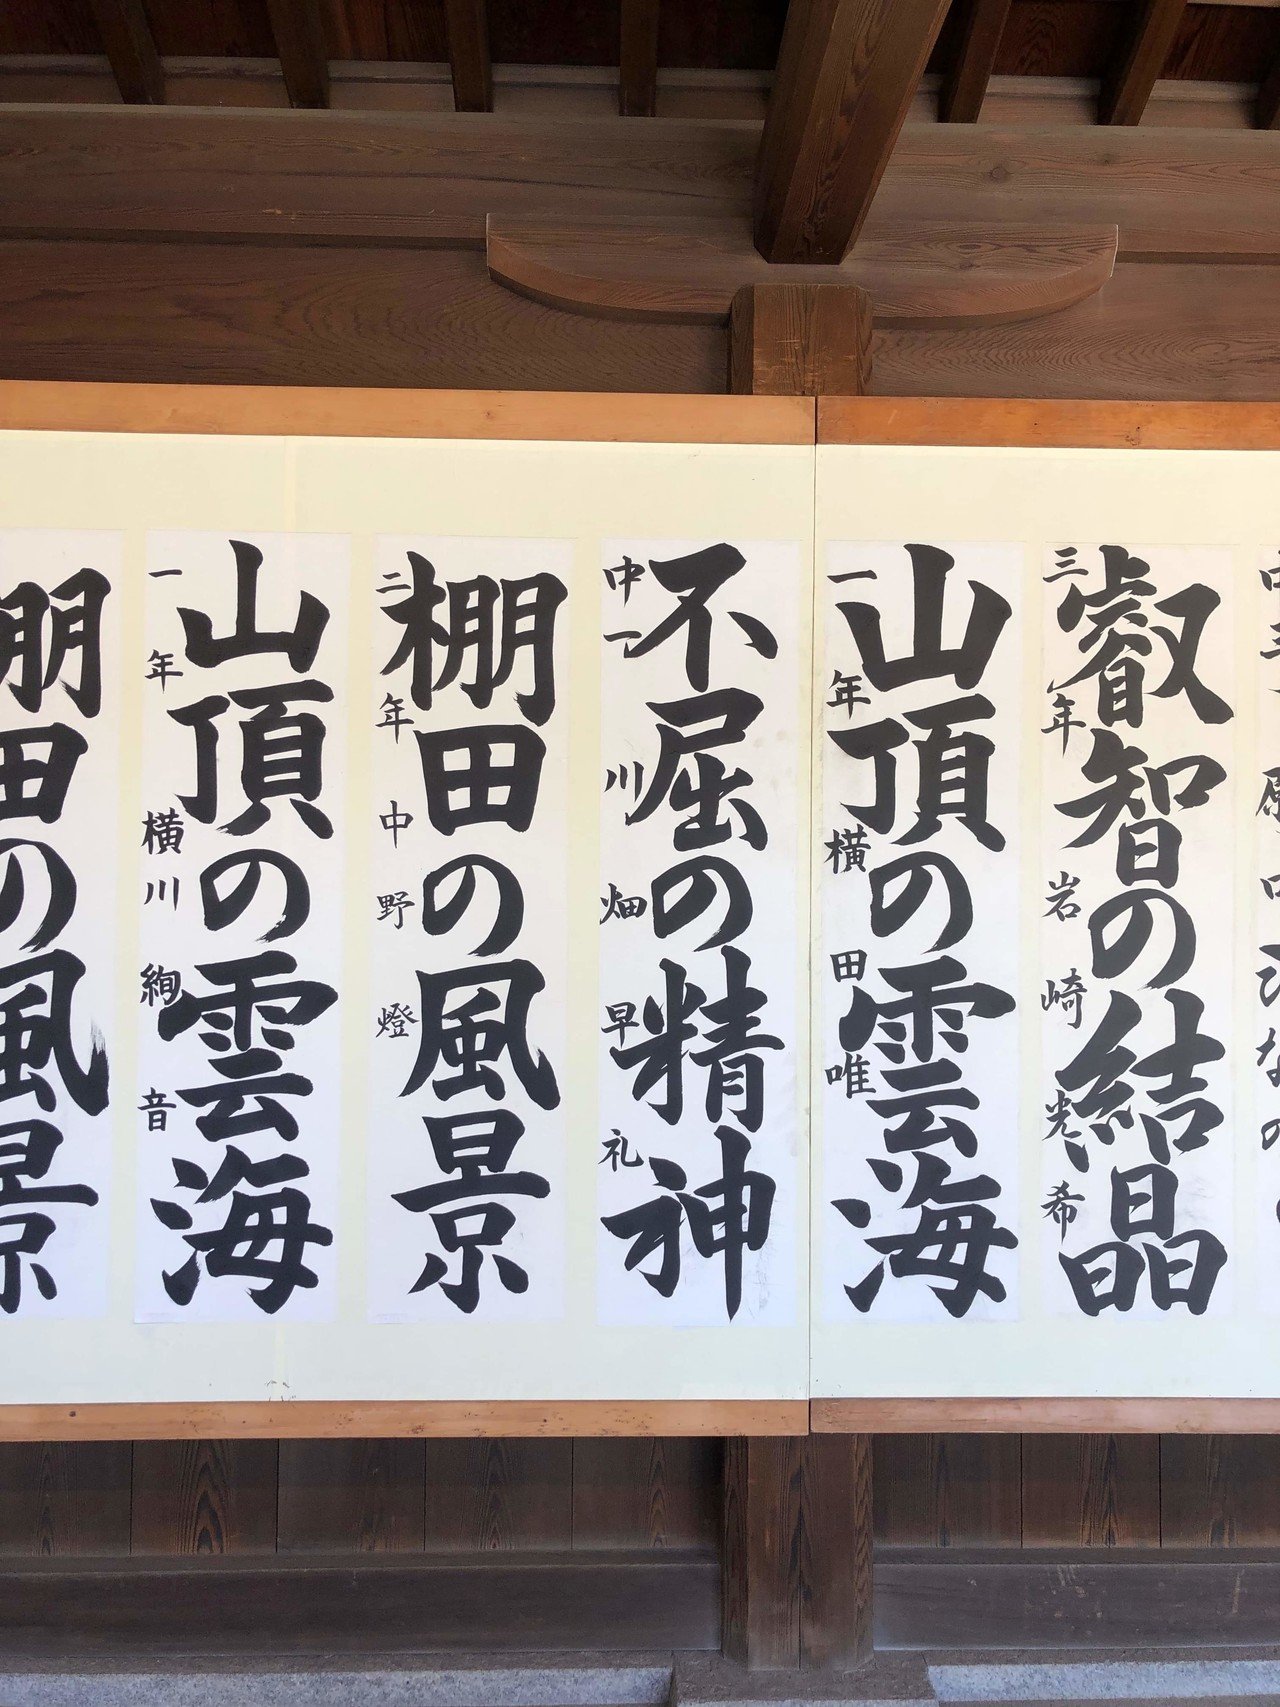 叡智の結晶
三年 岩崎光希
山頂の雲海
一年 横田唯
不屈の精神
中一 川畑早礼
棚田の風景
二年 中野燈
山頂の雲海
一年 横川絢音
棚田の風景